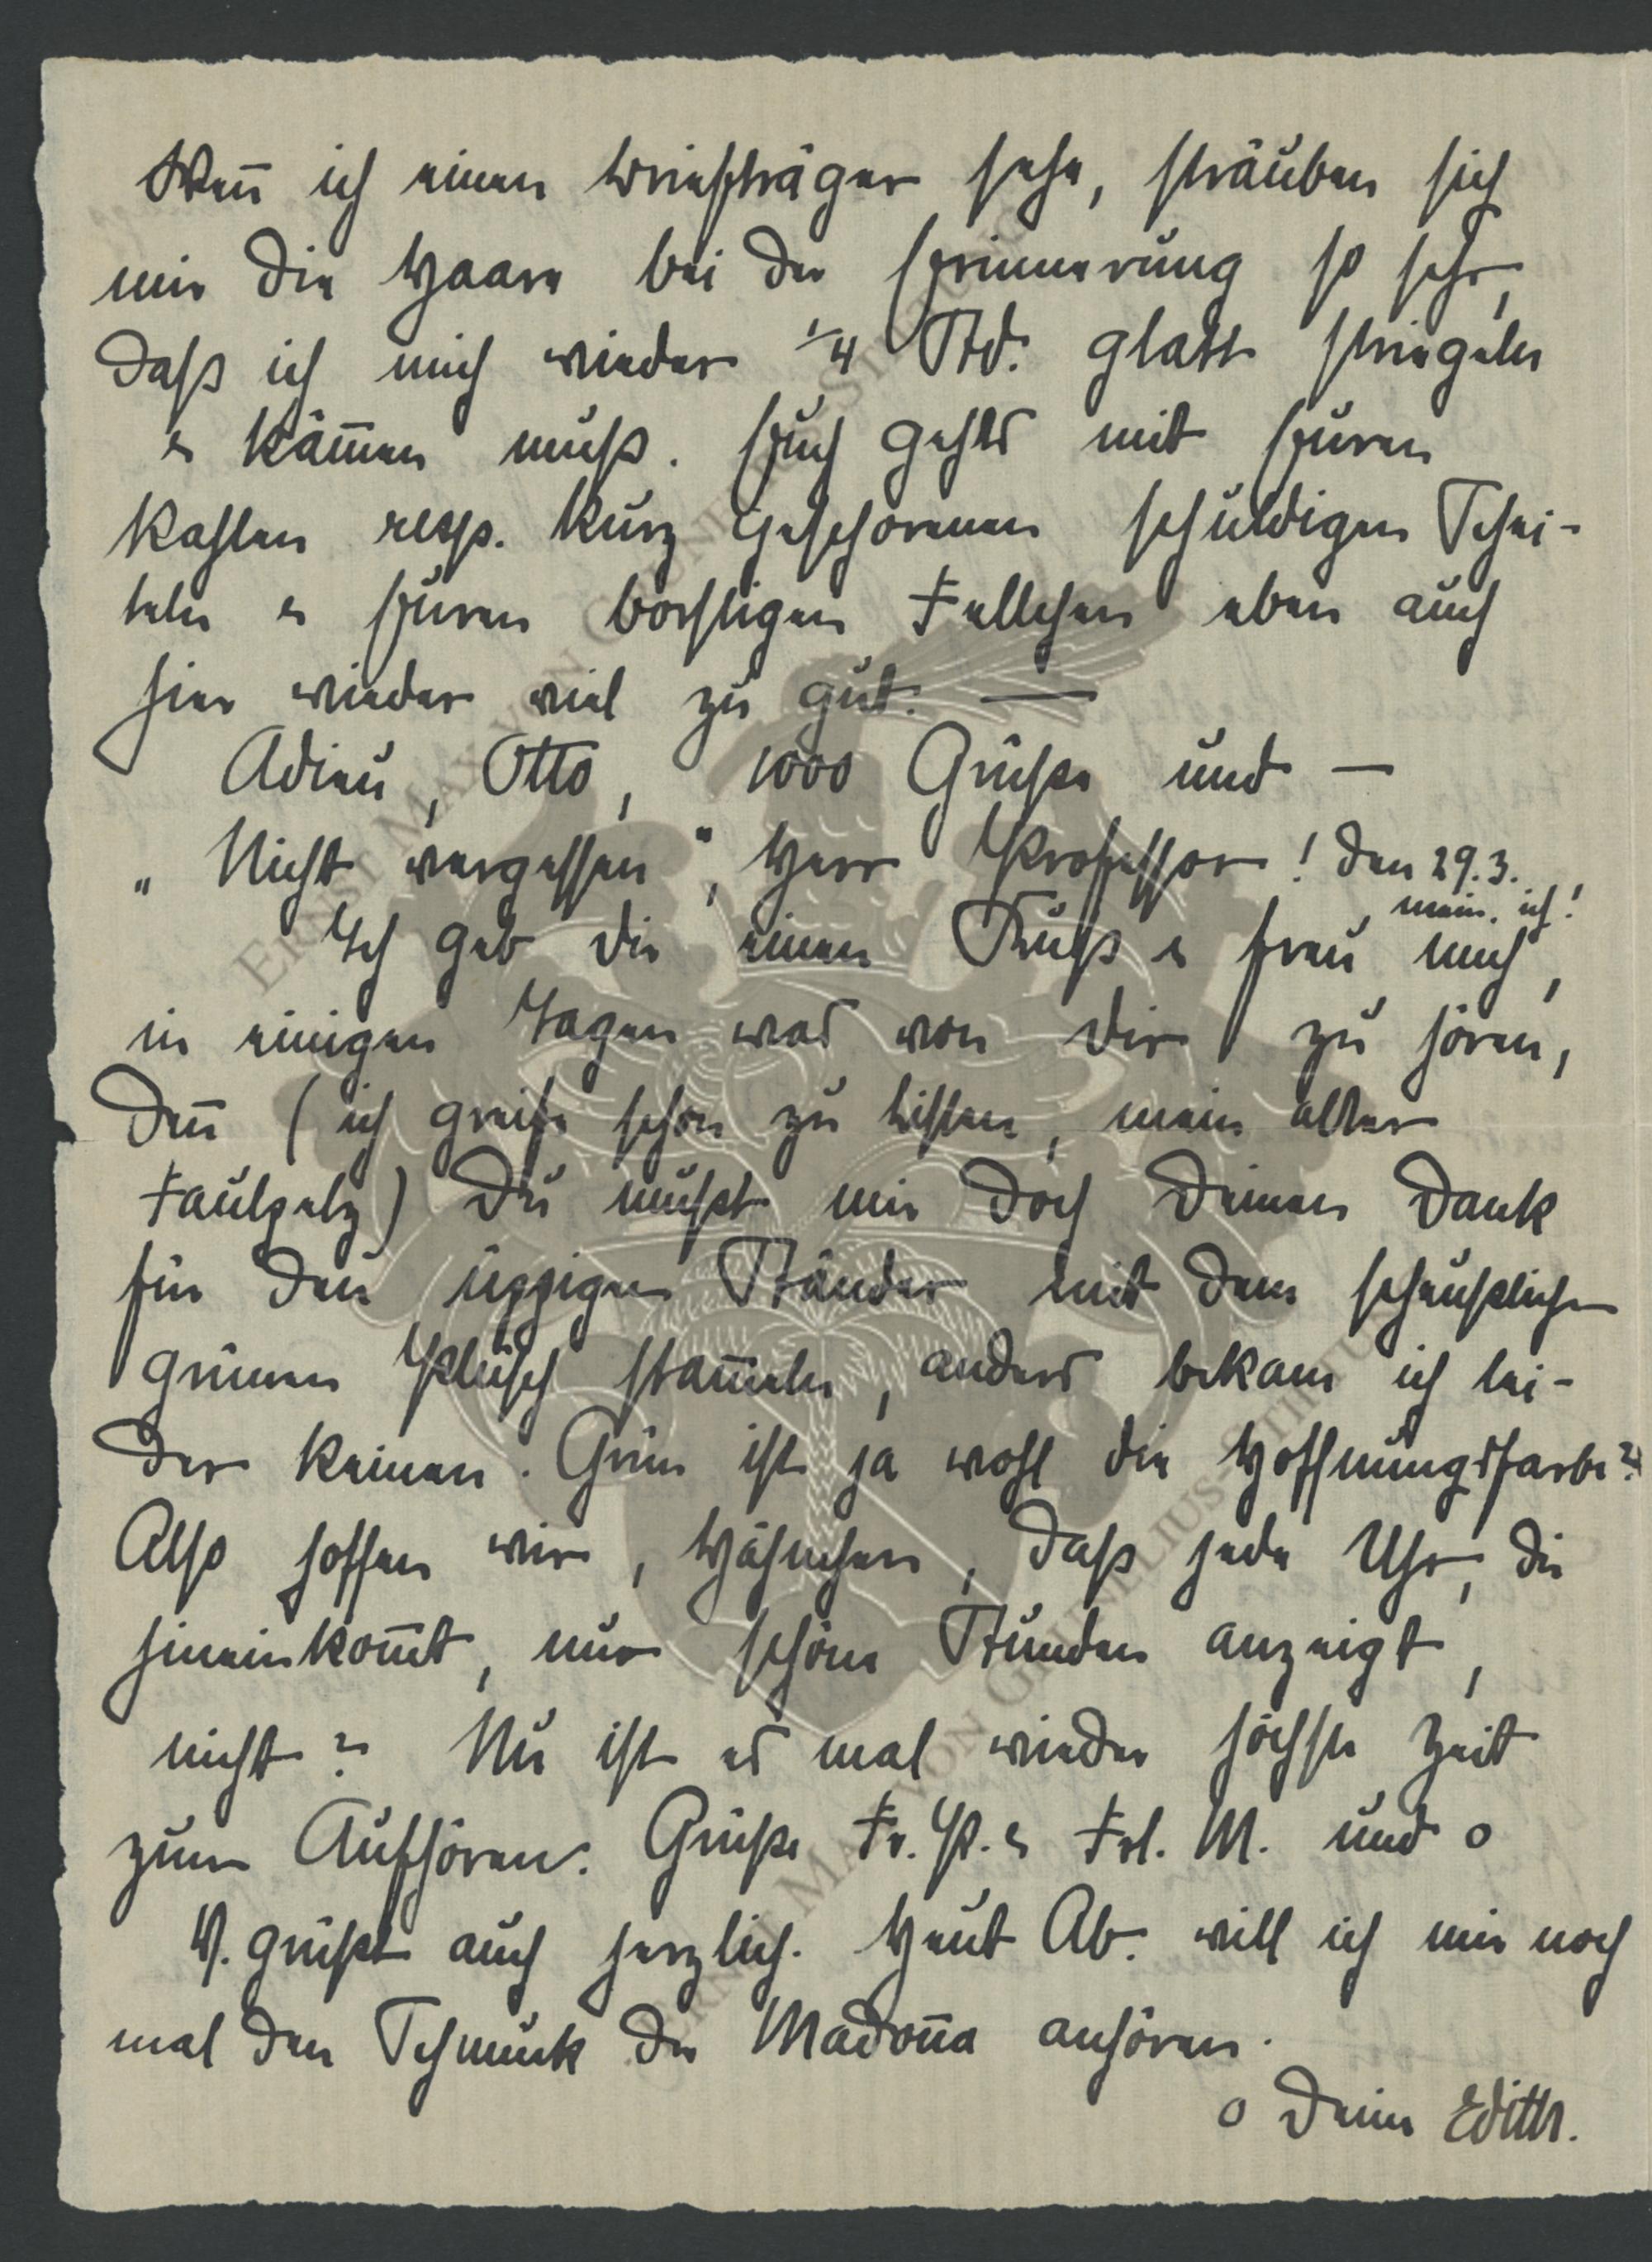 Wen̄ ich einen Briefträger sehe, sträuben sich
mir die Haare bei der Erinnerung so sehr,
daß ich mich wieder 1/4 Std. glatt striegeln
& käm̄en muß. Euch gehts mit Euren
kahlen resp. kurz geschorenen schuldigen Schei-
teln & Euren borstigen Fellchen eben auch
hier wieder viel zu gut. —
Adieu, Otto, 1000 Grüße und —
„Nicht vergessen“, Herr Professor! den 29.3.
, mein. ich!
Ich geb Dir einen Kuß & freu mich,
in einigen Tagen was von Dir zu hören,
den̄ (ich greife schon zu Listen, mein alter
Faulpelz) Du mußt mir doch Deinen Dank
für den üppigen Ständer mit dem scheußlichen
grünen Plüsch stam̄eln, anders bekam ich lei-
der keinen. Grün ist ja wohl die Hoffnungsfarbe?
Also hoffen wir, Hähnchen, daß jede Uhr, die
hineinkom̄t, nur schöne Stunden anzeigt,
nicht? Nu ist es mal wieder höchste Zeit
zum Aufhören. Grüße Fr. P. & Frl. M. und o
V. grüßt auch herzlich. Heut Ab. will ich mir noch
mal den Schmuck der Madon̄a anhören.
o Deine Edith.
ERNST MAX VON GRUNELIUS-STIFTUNG
ERNST MAX VON GRUNELIUS-STIFTUNG